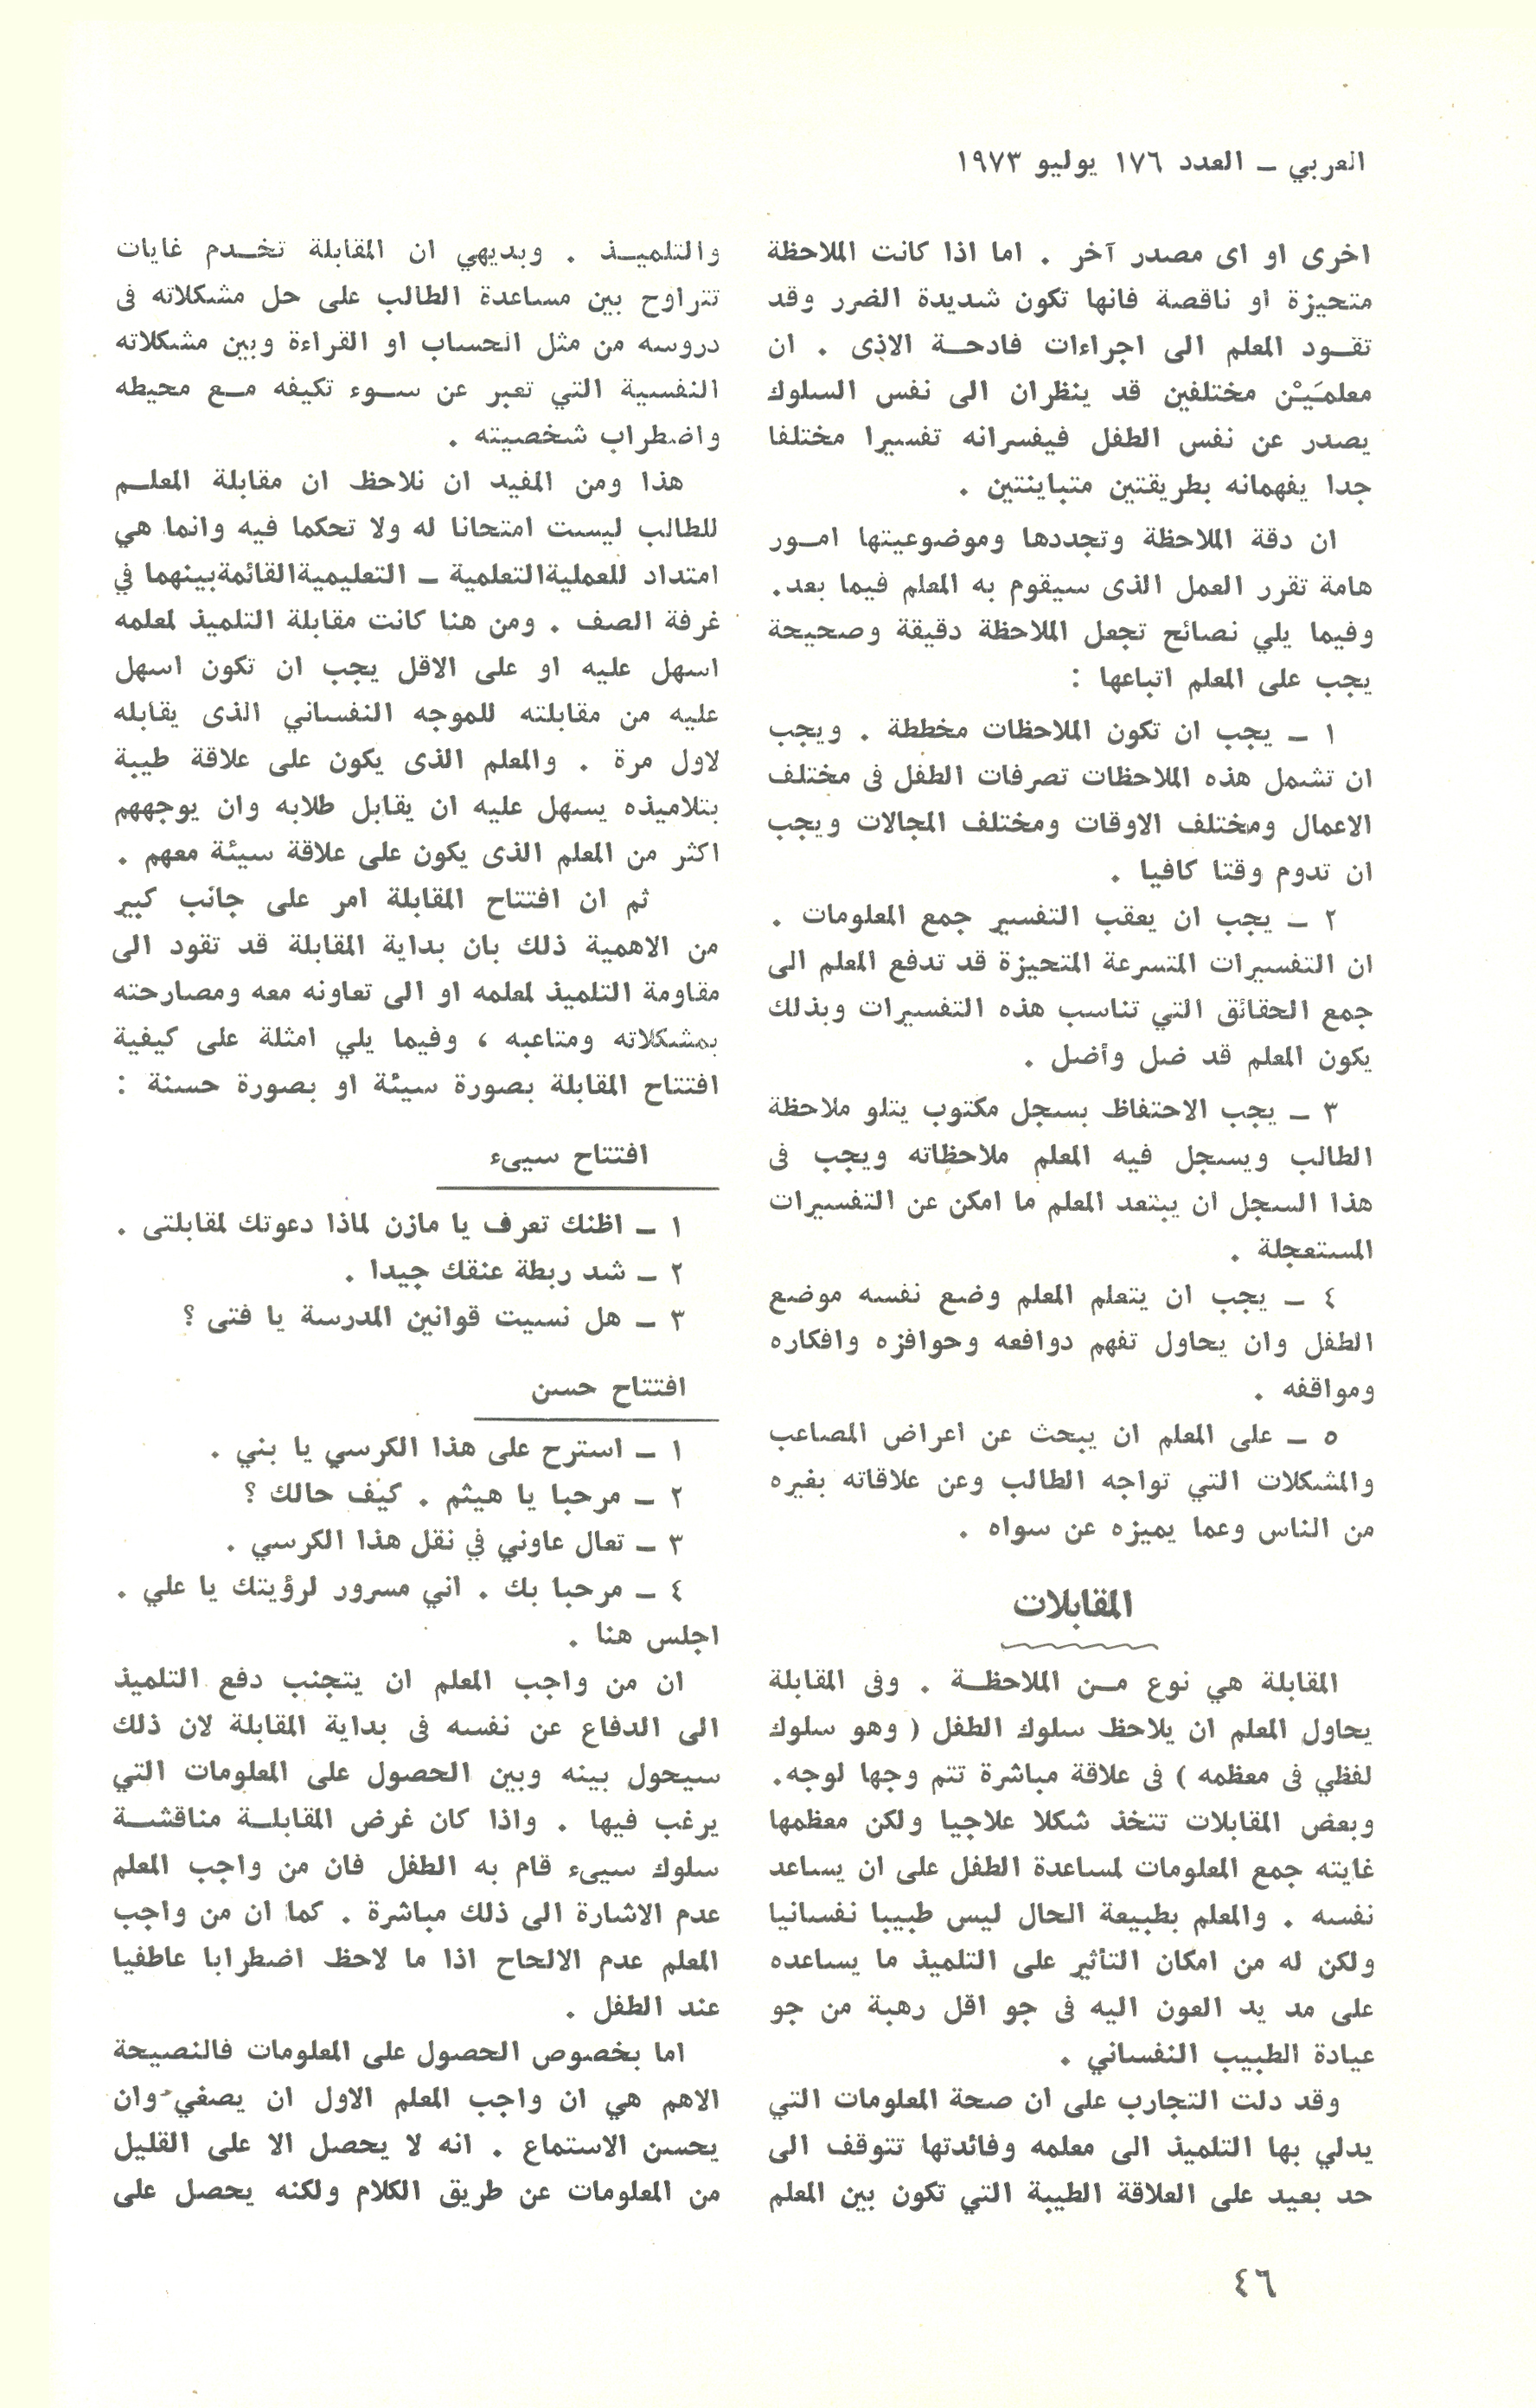 العربي ـ العدد ١٧٦ يوليو ١٩٧٣
اخرى او اى مصدر آخر . اما اذا كانت الملاحظة
متحيزة او ناقصة فانها تكون شديدة الضرر وقد
تقـود المعلم الى اجراءات فادحـة الاذى . ان
معلمَيْن مختلفين قد ينظران الى نفس السلوك
يصدر عن نفس الطفل فيفسرانه تفسيرا مختلفا
جدا يفهمانه بطريقتين متباينتين .
ان دقة الملاحظة وتجددها وموضوعيتها امـور
هامة تقرر العمل الذى سيقوم به المعلم فيما بعد.
وفيما يلي نصائح تجعل الملاحظة دقيقة وصحيحة
يجب على المعلم اتباعها :
١ ـ يجب ان تكون الملاحظات مخططة . ويجب
ان تشمل هذه الملاحظات تصرفات الطفل فى مختلف
الاعمال ومختلف الاوقات ومختلف المجالات ويجب
ان تدوم وقتا كافيا .
٢ ـ يجب ان يعقب التفسير جمع المعلومات .
ان التفسيرات المتسرعة المتحيزة قد تدفع المعلم الى
جمع الحقائق التي تناسب هذه التفسيرات وبذلك
يكون المعلم قد ضل وأضل .
٣ ـ يجب الاحتفاظ بسجل مكتوب يتلو ملاحظة
الطالب ويسجل فيه المعلم ملاحظاته ويجب فى
هذا السجل ان يبتعد المعلم ما امكن عن التفسيرات
المستعجلة .
٤ ـ يجب ان يتعلم المعلم وضع نفسه موضع
الطفل وان يحاول تفهم دوافعه وحوافزه وافكاره
ومواقفه .
٥ ـ على المعلم ان يبحث عن اعراض المصاعب
والمشكلات التي تواجه الطالب وعن علاقاته بغيره
من الناس وعما يميزه عن سواه .
المقابلات
المقابلة هي نوع مـن الملاحظـة . وفى المقابلة
يحاول المعلم ان يلاحظ سلوك الطفل ( وهو سلوك
لفظي فى معظمه ) فى علاقة مباشرة تتم وجها لوجه.
وبعض المقابلات تتخذ شكلا علاجيا ولكن معظمها
غايته جمع المعلومات لمساعدة الطفل على ان يساعد
نفسه . والمعلم بطبيعة الحال ليس طبيبا نفسانيا
ولكن له من امكان التأثير على التلميذ ما يساعده
على مد يد العون اليه فى جو اقل رهبة من جو
عيادة الطبيب النفساني .
وقد دلت التجارب على ان صحة المعلومات التي
يدلي بها التلميذ الى معلمه وفائدتها تتوقف الى
حد بعيد على العلاقة الطيبة التي تكون بين المعلم
والتلميـذ . وبديهي ان المقابلة تخـدم غايات
تتراوح بين مساعدة الطالب على حل مشكلاته فى
دروسه من مثل الحساب او القراءة وبين مشكلاته
النفسية التي تعبر عن سـوء تكيفه مـع محيطه
واضطراب شخصيته .
هذا ومن المفيد ان نلاحظ ان مقابلة المعلـم
للطالب ليست امتحانا له ولا تحكما فيه وانما هي
امتداد للعملية التعلمية ـ التعليمية القائمة بينهما في
غرفة الصف . ومن هنا كانت مقابلة التلميذ لمعلمه
اسهل عليه او على الاقل يجب ان تكون اسهل
عليه من مقابلته للموجه النفساني الذى يقابله
لاول مرة . والمعلم الذى يكون على علاقة طيبة
بتلاميذه يسهل عليه ان يقابل طلابه وان يوجههم
اكثر من المعلم الذى يكون على علاقة سيئة معهم .
ثم ان افتتاح المقابلة امر على جانب كبير
من الاهمية ذلك بان بداية المقابلة قد تقود الى
مقاومة التلميذ لمعلمه او الى تعاونه معه ومصارحته
بمشكلاته ومتاعبه ، وفيما يلي امثلة على كيفية
افتتاح المقابلة بصورة سيئة او بصورة حسنة :
افتتاح سيىء
١ ـ اظنك تعرف يا مازن لماذا دعوتك لمقابلتى .
٢ ـ شد ربطة عنقك جيدا .
٣ ـ هل نسيت قوانين المدرسة يا فتى ؟
افتتاح حسن
١ ـ استرح على هذا الكرسي يا بني .
٢ ـ مرحبا يا هيثم . كيف حالك ؟
٣ ـ تعال عاوني في نقل هذا الكرسي .
٤ ـ مرحبا بك . اني مسرور لرؤيتك يا علي .
اجلس هنا .
ان من واجب المعلم ان يتجنب دفع التلميذ
الى الدفاع عن نفسه فى بداية المقابلة لان ذلك
سيحول بينه وبين الحصول على المعلومات التي
يرغب فيها . واذا كان غرض المقابلـة مناقشـة
سلوك سيىء قام به الطفل فان من واجب المعلم
عدم الاشارة الى ذلك مباشرة . كما ان من واجب
المعلم عدم الالحاح اذا ما لاحظ اضطرابا عاطفيا
عند الطفل .
اما بخصوص الحصول على المعلومات فالنصيحة
الاهم هي ان واجب المعلم الاول ان يصغي وان
يحسن الاستماع . انه لا يحصل الا على القليل
من المعلومات عن طريق الكلام ولكنه يحصل على
٤٦